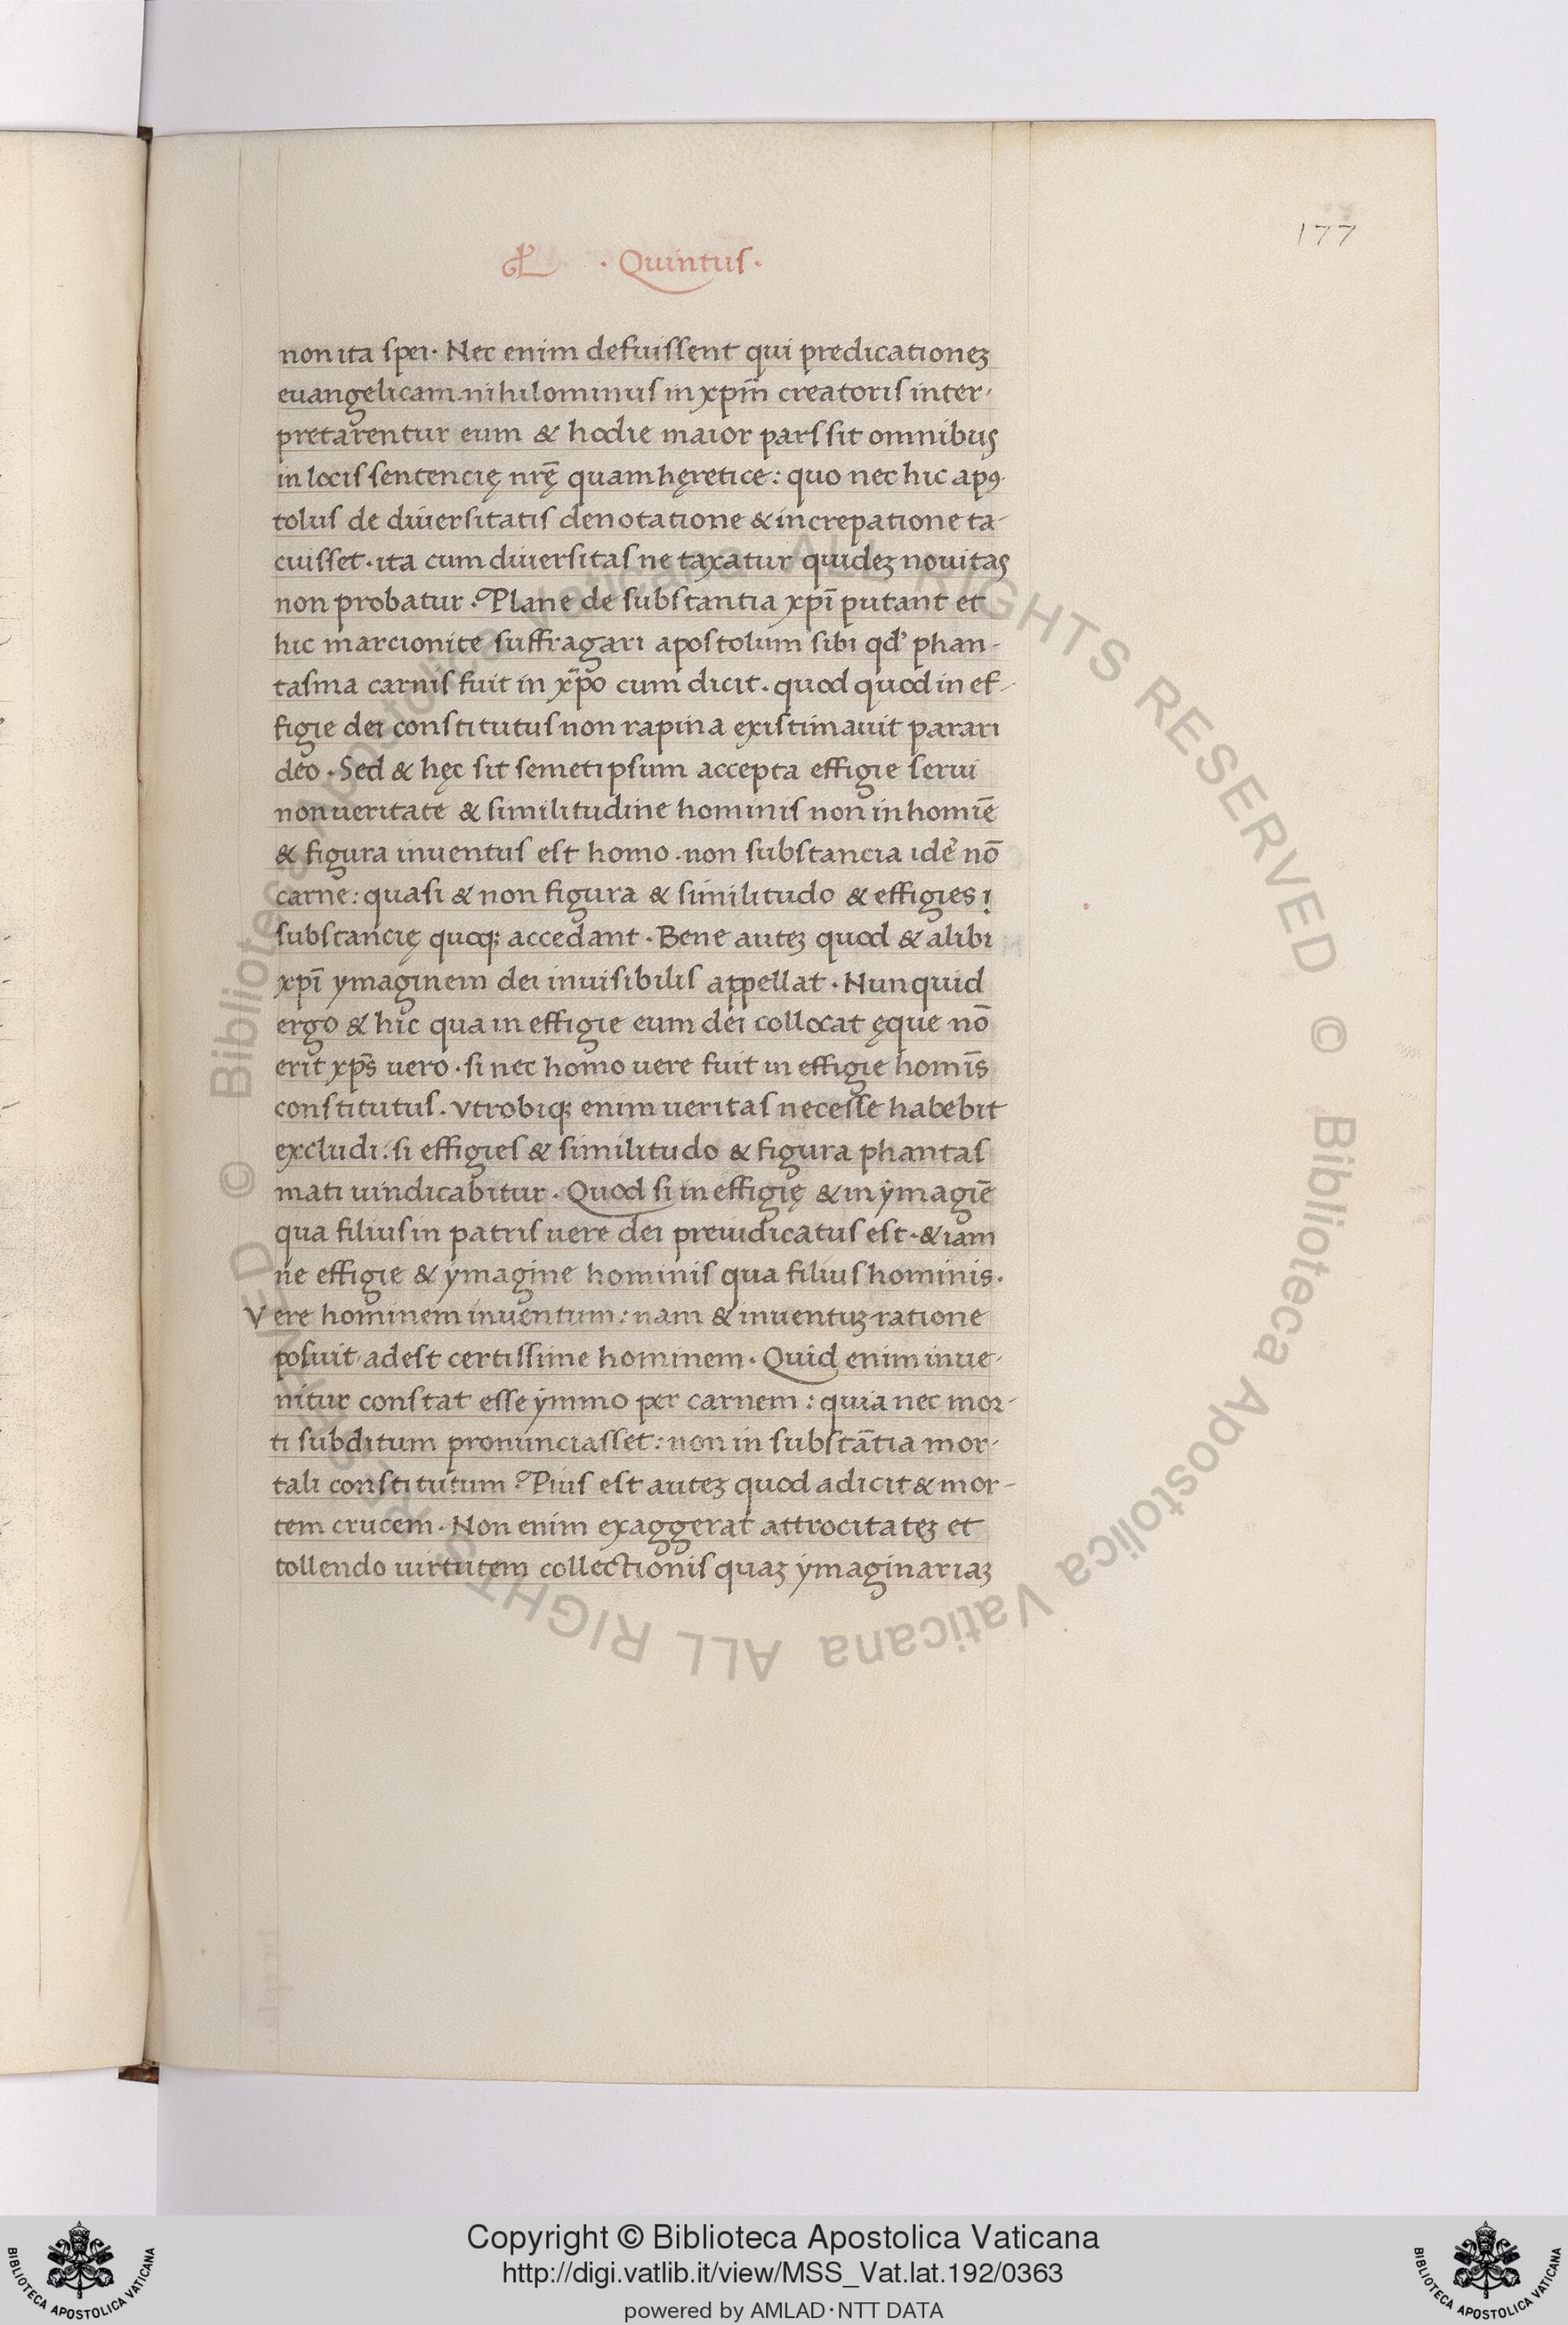 177
· Quintus ·
non ita spei · Nec enim defuissent qui predicationeʒ
euangelicam . nihilominus in xp̄m creatoris inter-
pretarentur eum & hodie maior pars sit omnibus
in locis sentencię nr̄ę quam hęretice : quo nec hic apꝯ-
tolus de diuersitatis denotatione & increpatione ta-
cuisset · ita cum diuersitas ne taxatur quideʒ nouitas
non probatur · Plane de substantia xp̄i putant et
hic marcionite suffragari apostolum sibi qd' phan-
tasma carnis fuit in xp̄o cum dicit . quod quod in ef-
figie dei constitutus non rapina existimauit parari
deo · Sed & hęc sit semetipsum accepta effigie serui
non ueritate & similitudine hominis non in homīe
& figura inuentus est homo . non substancia idē nō
carne : quasi & non figura & similitudo & effigies ;
substancię quoqꝫ accedant · Bene auteʒ quod & alibi
xp̄i ymaginem dei inuisibilis appellat · Nunquid
ergo & hic qua in effigie eum dei collocat ęque nō
erit xp̄s uero · si nec homo uere fuit in effigie homīs
constitutus . vtrobiqꝫ enim ueritas necesse habebit
excludi : si effigies & similitudo & figura phantas
mati uindicabitur · Quod si in effigię & in ymagīe
qua filius in patris uere dei preiudicatus est · & iam
ne effigie & ymagine hominis qua filius hominis ·
Vere hominem inuentum : nam & inuentuʒ ratione
posuit adest certissime hominem · Quid enim inue-
nitur constat esse ymmo per carnem : quia nec mor-
ti subditum pronunciasset : non in substātia mor-
tali constitutum ? Pius est auteʒ quod adicit & mor-
tem crucem · Non enim exaggerat attrocitateʒ et
tollendo uirtutem collectionis quaʒ ymaginariaʒ
Copyright © Biblioteca Apostolica Vaticana
http://digi.vatlib.it/view/MSS_Vat.lat.192/0363
powered by AMLAD·NTT DATA
BIBLIOTECA APOSTOLICA VATICANA
BIBLIOTECA APOSTOLICA VATICANA
© Biblioteca Apostolica Vaticana ALL RIGHTS RESERVED © Biblioteca Apostolica Vaticana ALL RIGHTS RESERVED